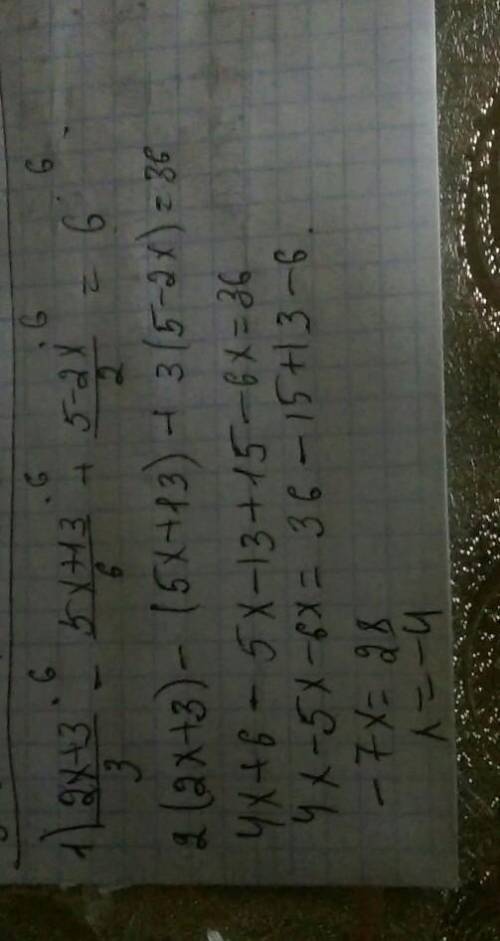 1) (2x+3)/3 ·6 − (5x+13)/6 ·6 + (5−2x)/2 ·6 = 6 ·6
2(2x+3) − (5x+13) + 3(5−2x) = 36
4x+6 − 5x−13+15−6x=36
4x−5x−6x = 36 −15+13−6.
−7x = 28
x = −4